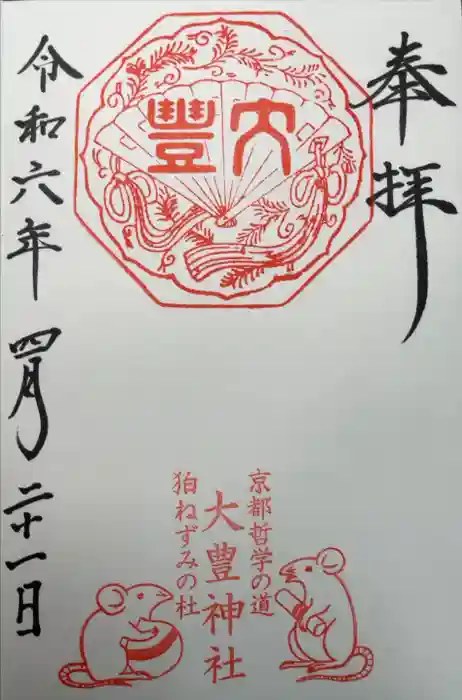 奉拝
大豐
京都哲学の道
大豊神社
狛ねずみの社
令和六年 四月 二十一日